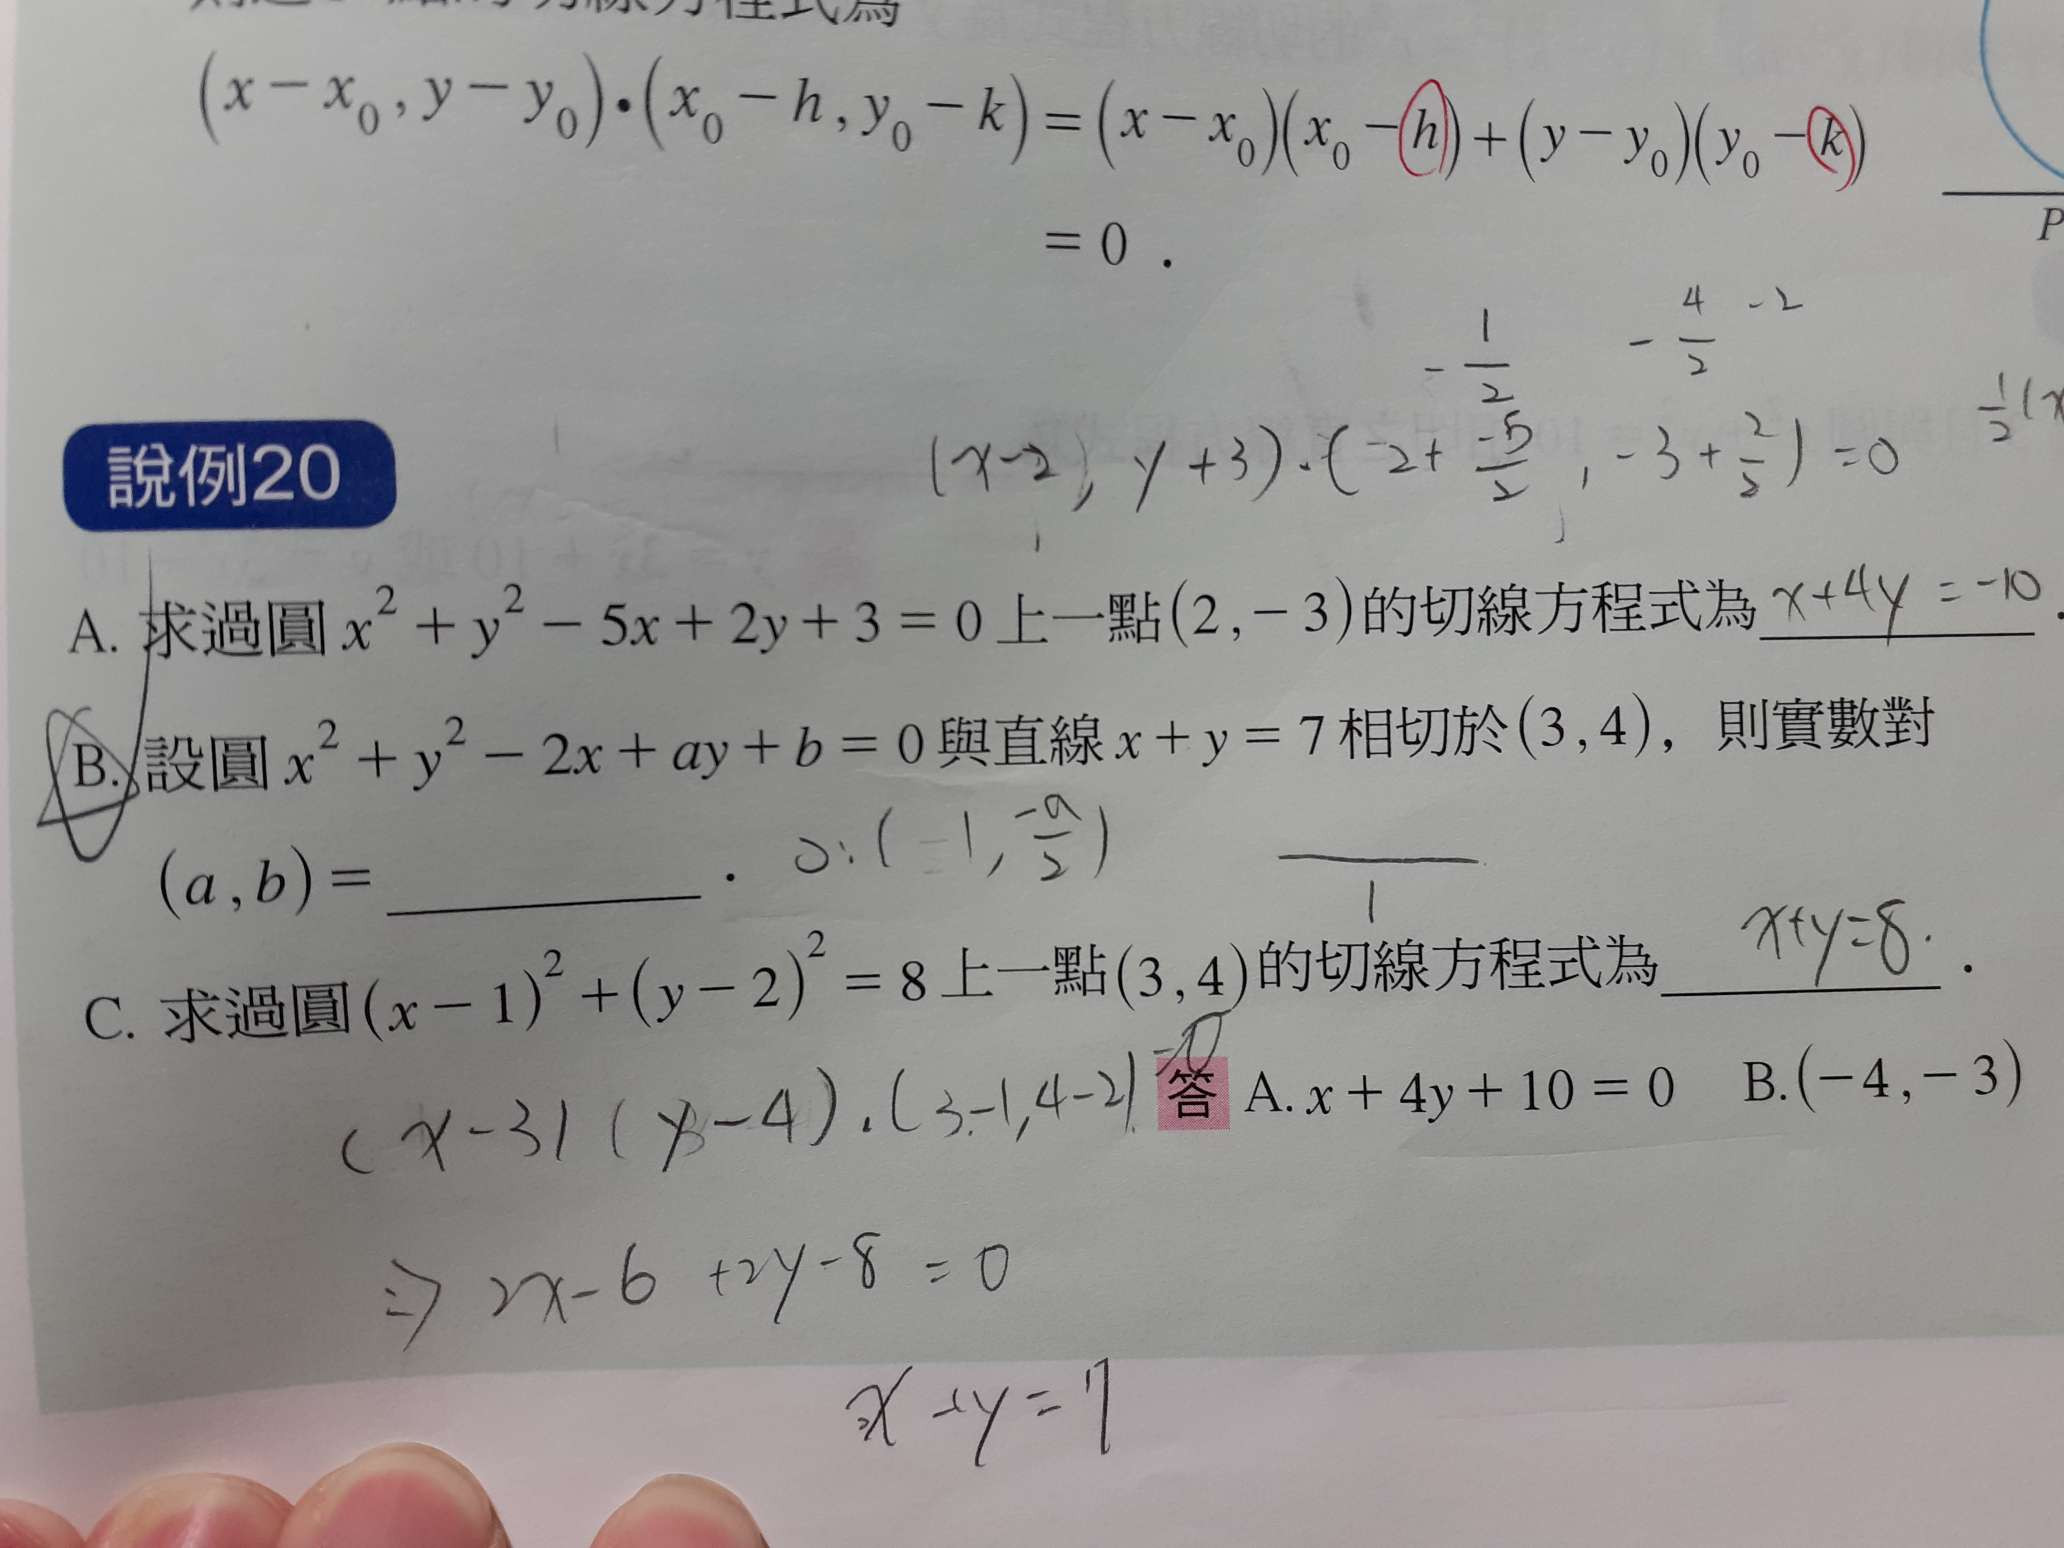 的切線方程式為
(x − x₀, y − y₀)•(x₀ − h, y₀ − k) = (x − x₀)(x₀ − h) + (y − y₀)(y₀ − k)
= 0 .
P
− 1/2 − 4/2 −2
說例20
(x−2), y+3)·(−2+ −5/2 , −3+ 2/2) =0 1/2 (x
A. 求過圓 x² + y² − 5x + 2y + 3 = 0 上一點(2, −3)的切線方程式為 x+4y = −10 .
B. 設圓 x² + y² − 2x + ay + b = 0 與直線 x + y = 7 相切於(3, 4)，則實數對
(a, b) = ______ . O:(−1, −a/2) 1
C. 求過圓(x − 1)² + (y − 2)² = 8 上一點(3, 4)的切線方程式為 x+y=8. .
(x−3) (y−4)·(3−1, 4−2) =0
答 A. x + 4y + 10 = 0 B. (−4, −3)
⇒ 2x−6 +2y−8 = 0
x+y=7